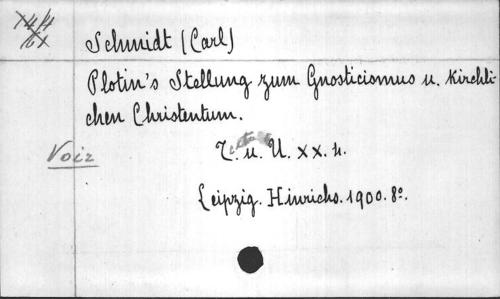 Schmidt (Carl)
Plotin's Stellung zum Gnosticismus u. kirchli-
chen Christentum.
Voir
T. u. U. XX. 4.
Leipzig. Hinrichs. 1900. 8º.